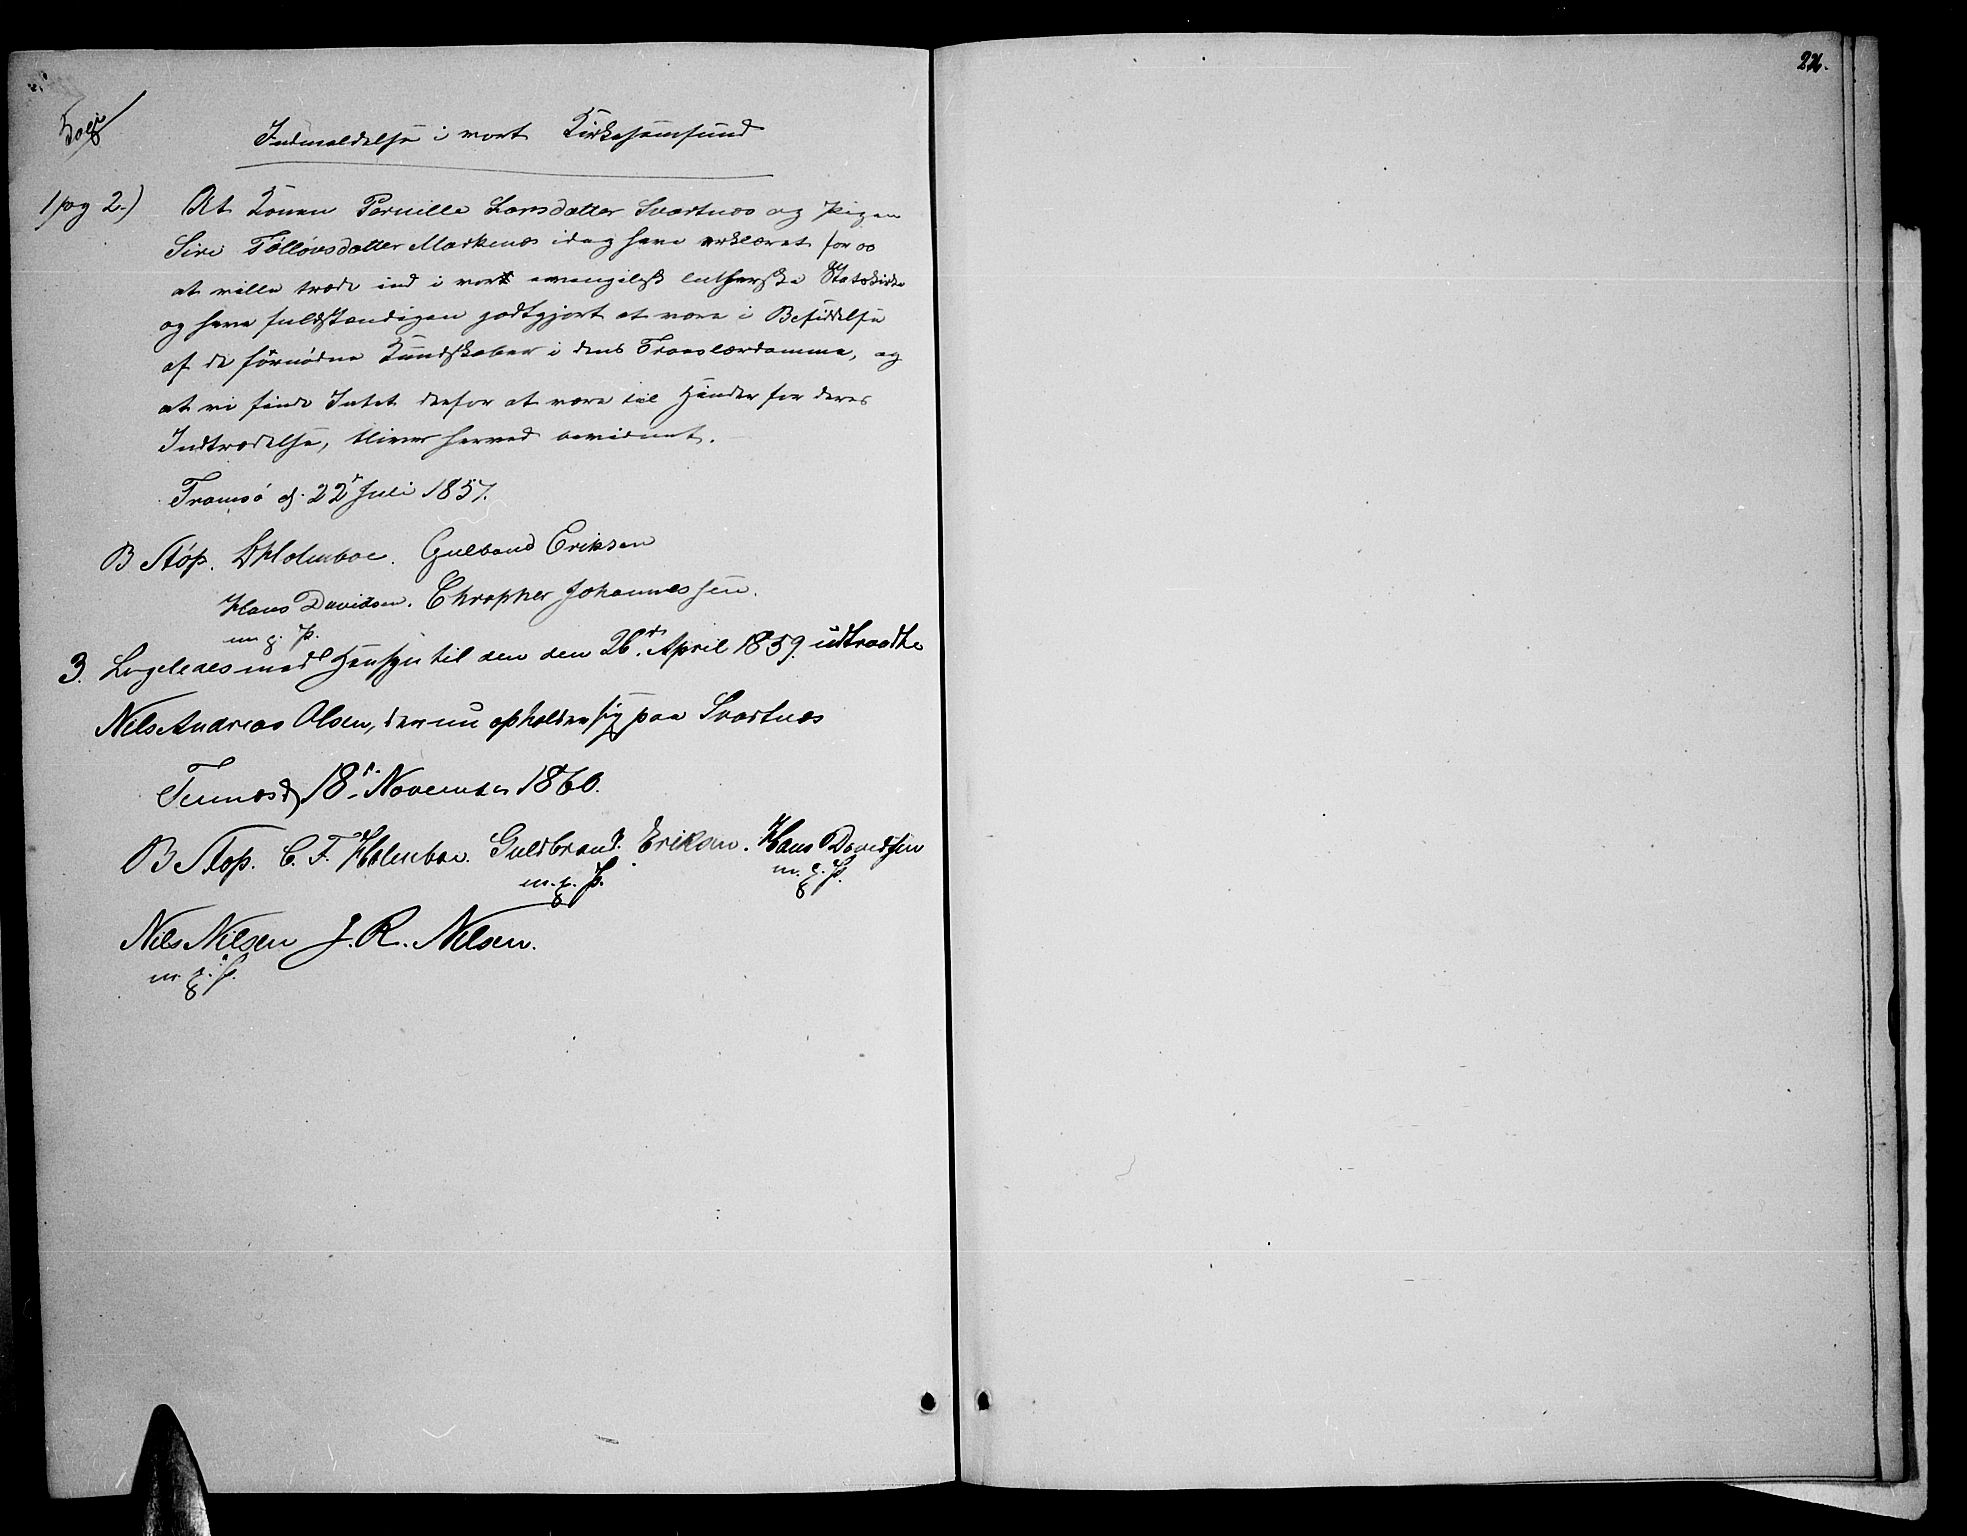 226.
Indmeldelse i vort Kirkesamfund
1 og 2.) At Konen Pernille Larsdatter Svartnes og Pigen
Siri Tølløvsdatter Markenes idag have erklæret for os
at ville træde ind i vor evangelisk lutherske Statskirke
og have fuldstændigen godtgjort at være i Besiddelse
af de fornødne Kundskaber i dens Troeslærdomme, og
at vi finde Intet derfor at være til Hinder for deres
Indtrædelse, bliver herved bevidnet.
Tromsø d. 22 Juli 1857.
B Støp. Holmboe. Gulbrand Eriksen
Hans Davidsen. Johannessen.
m. q. P.
3. Ligeledes med Hensyn til den den 26. April 1859. udtraadte
Nils Andreas Olsen, der nu opholder sig paa Svartnes
18. November 1860.
B Støp. C. F. Holmboe. Guldbrand. Eriksen. Hans Davidsen
m. q. P. m. q. P.
Nils Nilsen J. R. Nilsen.
m. q. P.